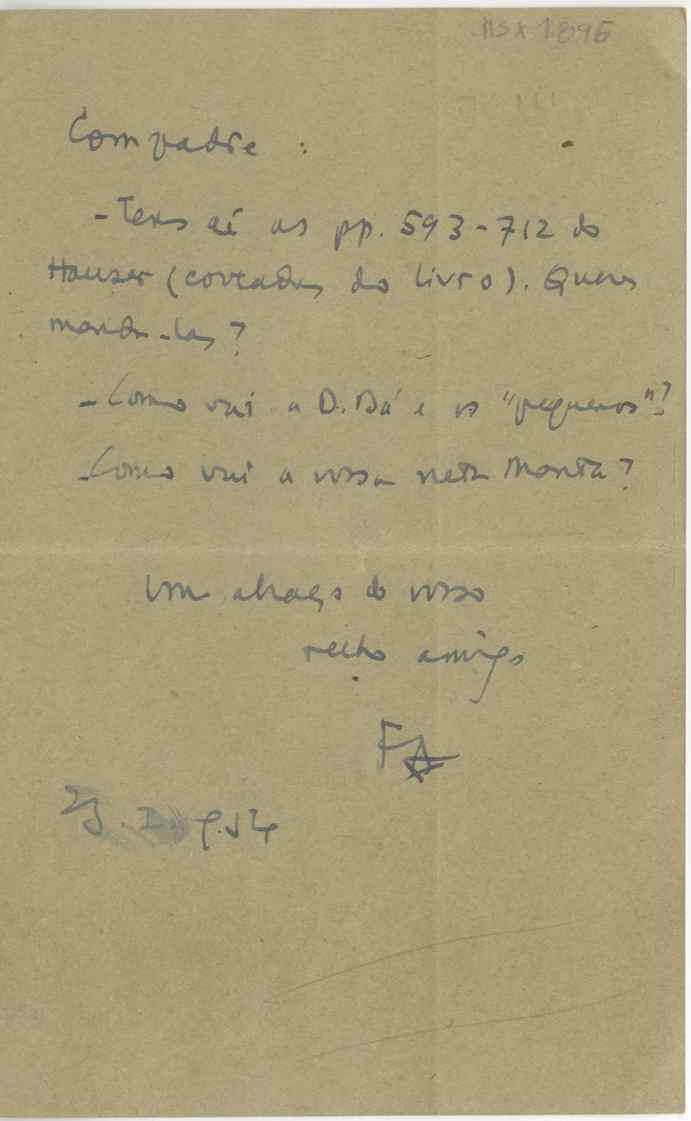 MSX 1896
Compadre :
- Tens aí as pp. 593-712 do
Hauser (cortadas do livro). Queres
mandá-las?
- Como vai a D. Bá e os "pequenos"?
- Como vai a vossa neta Marta?
Um abraço do vosso
velho amigo
FA